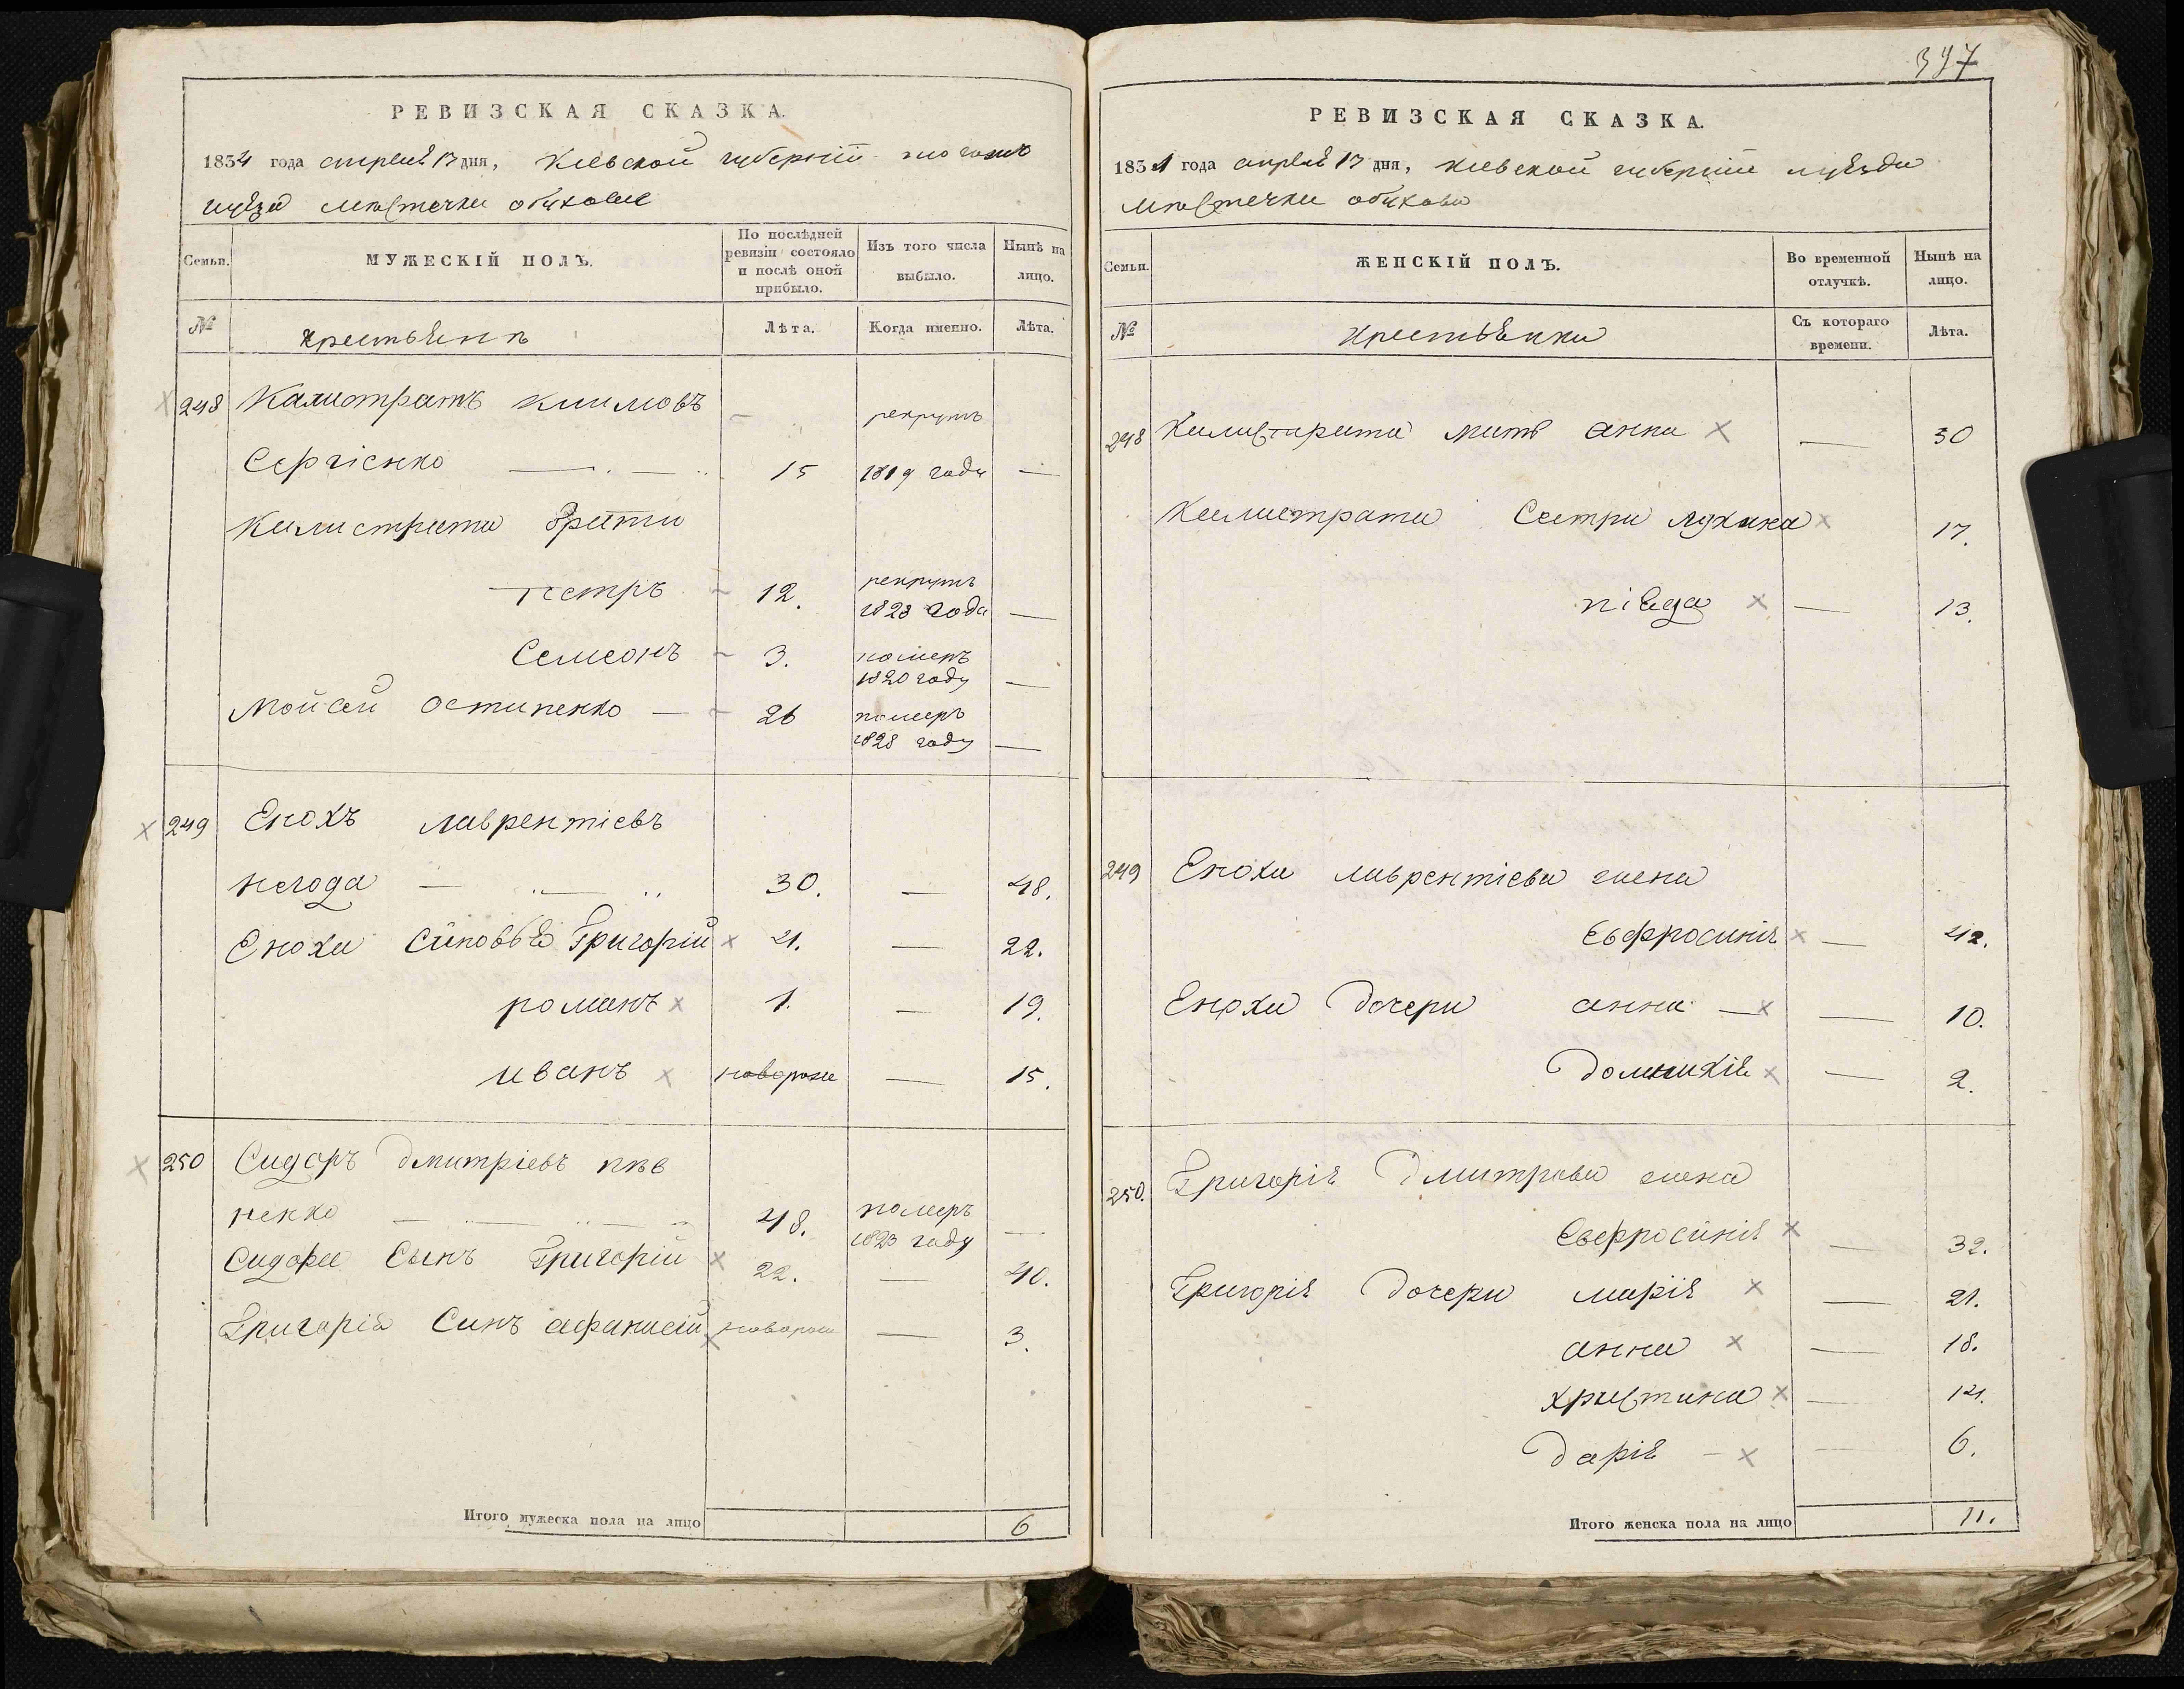 РЕВИЗСКАЯ СКАЗКА.
1834 года апреля 13 дня, Киевской губернии того же
уезда местечка обухова
Семьи.
МУЖЕСКІЙ ПОЛЪ.
По послѣдней ревизіи состояло и послѣ оной прибыло.
Изъ того числа выбыло.
Нынѣ на лицо.
№
крестьяне
Лѣта.
Когда именно.
Лѣта.
248 Калистратъ климовъ рекрутъ
Сергіенко 15 1819 года —
Калистрата брати
петръ 12. рекрутъ
1823 года —
Семеонъ 3. померъ
1820 году —
Мойсей остапенко — 26 померъ
1828 году —
249 Енохъ лаврентіевъ
негода — 30. — 48.
Еноха сыновья Григорій 4. — 22.
романъ 1. — 19.
иванъ новорож — 15.
250 Сидоръ дмитріевъ пив
ненко 48. померъ
1823 году —
Сидора сынъ Григорій 22. — 40.
Григорія Синъ афанасій новорож — 3.
Итого мужеска пола на лицо 6
397
РЕВИЗСКАЯ СКАЗКА.
1834 года апреля 13 дня, киевской губерніи уезда
местечка обухова
Семьи.
ЖЕНСКІЙ ПОЛЪ.
Во временной отлучкѣ.
Нынѣ на лицо.
№
крестьянки
Съ котораго времени.
Лѣта.
248 Калистрата мать анна — 30
Калистрата Сестри 17.
— 13.
249 Еноха лаврентіева жена
Евфросинія — 42.
Еноха дочери анна — — 10.
домникія — 2.
250. Григорія Дмитрова жена
Евфросинія — 32.
Григорія дочери марія — 21.
анна — 18.
христина — 14.
дарія — — 6.
Итого женска пола на лицо 11.